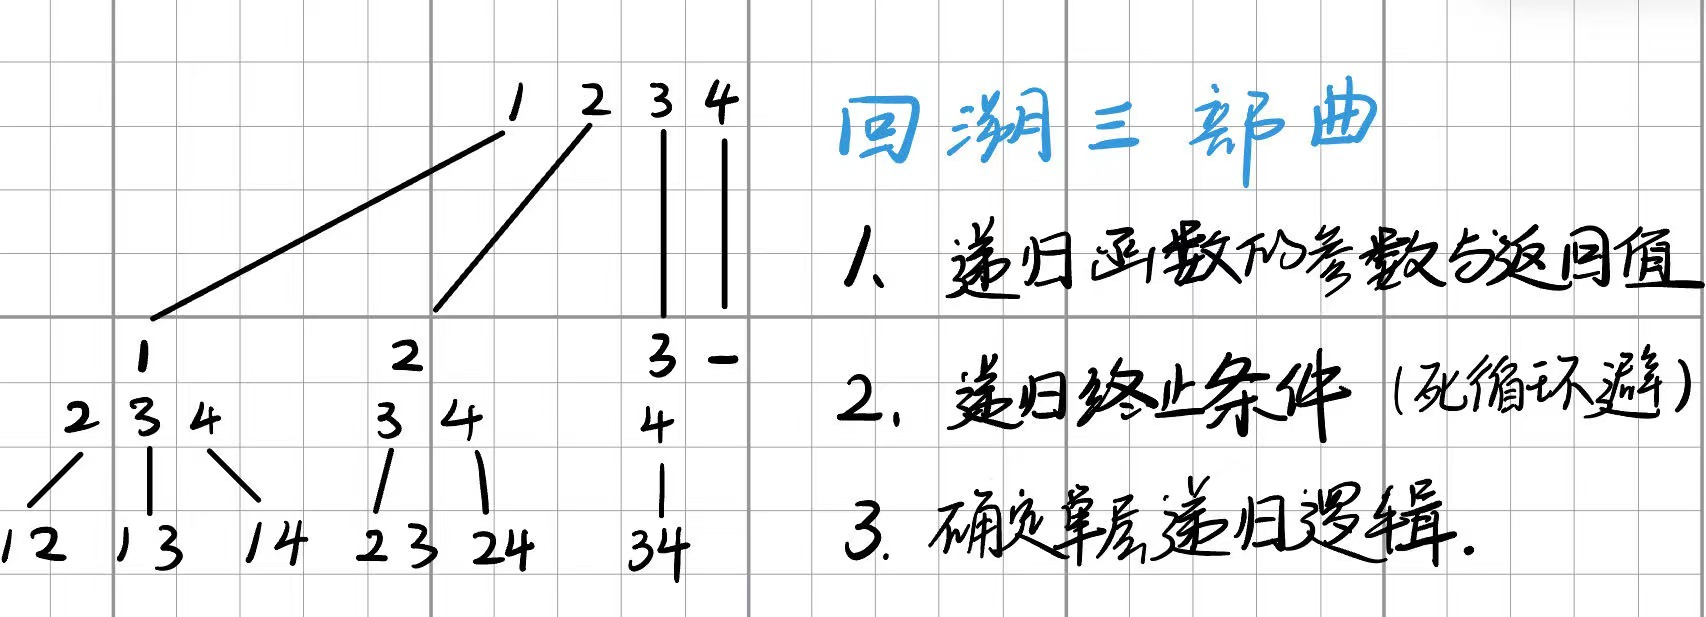 1 2 3 4
1 2 3 -
2 3 4 3 4 4
12 13 14 23 24 34
回溯三部曲
1、递归函数的参数与返回值
2. 递归终止条件 (死循环避)
3. 确定单层递归逻辑.